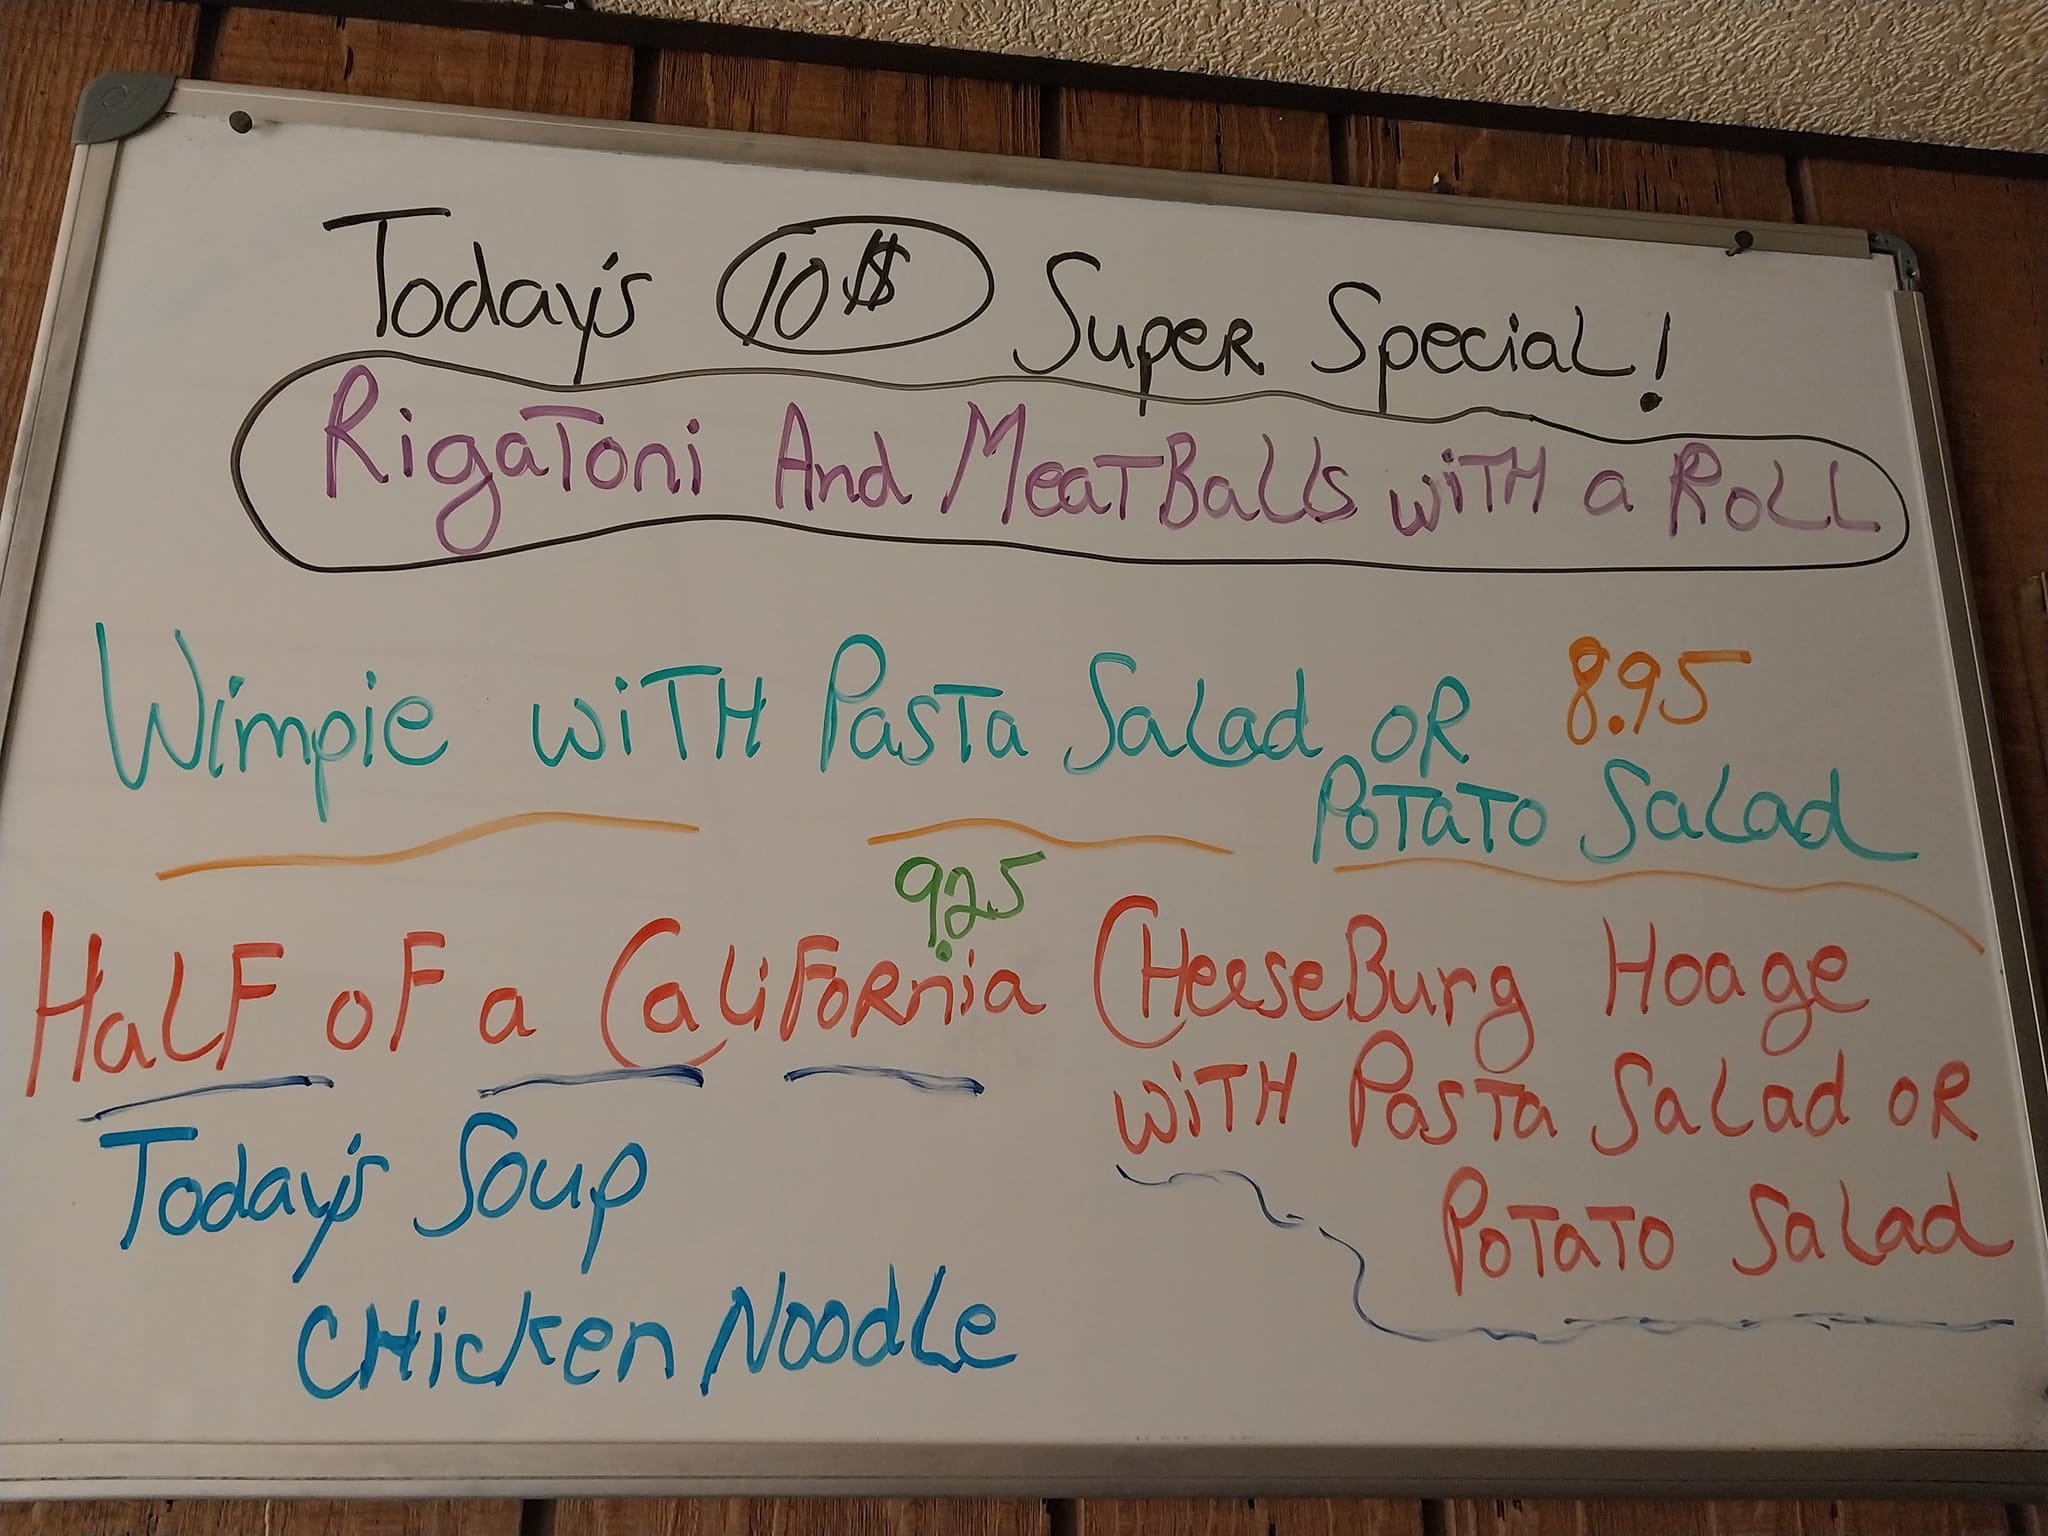 Today's 10$ Super Special!
Rigatoni And Meatballs with a Roll
Wimpie with Pasta Salad or 8.95
Potato Salad
9.25
Half of a California Cheeseburg Hoage
with Pasta Salad or
Potato Salad
Today's Soup
Chicken Noodle